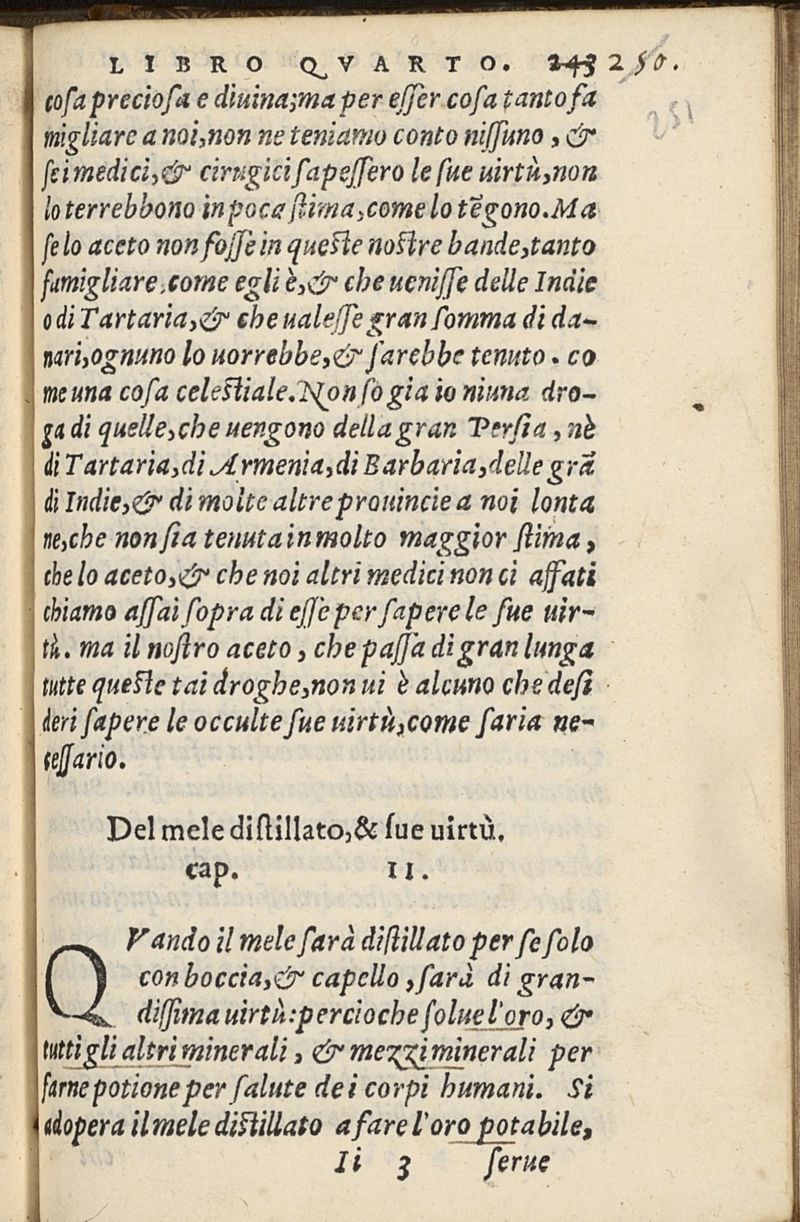 LIBRO QVARTO. 243 250.
251
cosa preciosa e diuina; ma per esser cosa tanto fa
migliare a noi, non ne teniamo conto nissuno, &
se i medici, & cirugici sapessero le sue uirtù, non
lo terrebbono in poca stima, come lo tẽgono. Ma
se lo aceto non fosse in queste nostre bande, tanto
famigliare, come egli è, & che uenisse delle Indie
o di Tartaria, & che ualesse gran somma di da-
nari, ognuno lo uorrebbe, & sarebbe tenuto. co
me una cosa celestiale. Non sò gia io niuna dro-
ga di quelle, che uengono della gran Persia, nè
di Tartaria, di Armenia, di Barbaria, delle grã
di Indie, & di molte altre prouincie a noi lonta
ne, che non sia tenuta in molto maggior stima,
che lo aceto, & che noi altri medici non ci affati
chiamo assai sopra di esse per sapere le sue uir-
tù. ma il nostro aceto, che passa di gran lunga
tutte queste tai droghe, non ui è alcuno che desi
deri sapere le occulte sue uirtù, come saria ne-
cessario.
Del mele distillato, & sue uirtù.
cap. 11.
QVando il mele sarà distillato per se solo
con boccia, & capello, sarà di gran-
dissima uirtù: percioche solue l'oro, &
tutti gli altri minerali, & mezzi minerali per
farne potione per salute de i corpi humani. Si
adopera il mele distillato a fare l'oro potabile,
Ii 3 serue